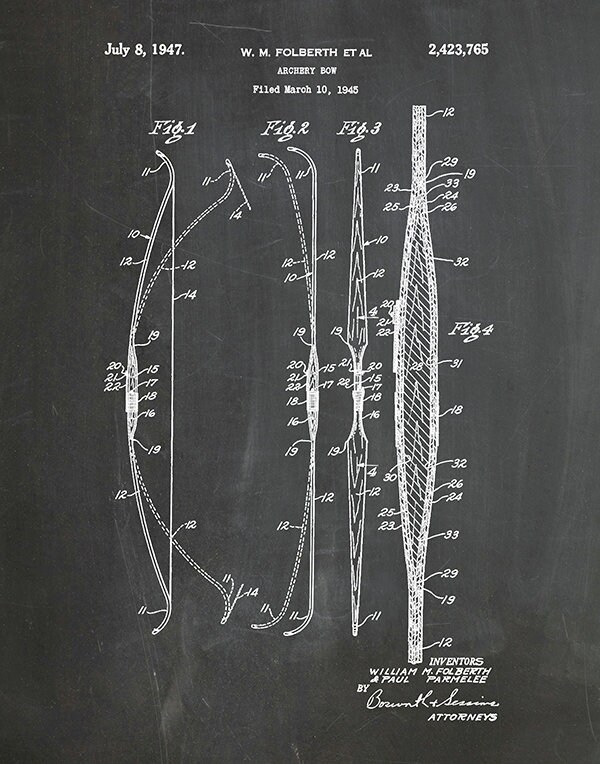 July 8, 1947.
W. M. FOLBERTH ET AL
2,423,765
ARCHERY BOW
Filed March 10, 1945
Fig.1
Fig.2
Fig.3
Fig.4
11
10
12
12
14
11
14
19
20
21
22
15
17
18
16
19
12
12
11
11
14
11
11
12
12
10
19
20
21
22
15
17
18
16
19
12
12
11
11
11
10
12
4
19
21
20
22
15
17
18
16
19
4
12
11
12
29
19
33
23
24
25
26
32
20
21
22
28
31
18
30
32
26
24
25
23
33
29
19
12
INVENTORS
WILLIAM M. FOLBERTH
& PAUL PARMELEE
BY
Bosworth & Sessions
ATTORNEYS